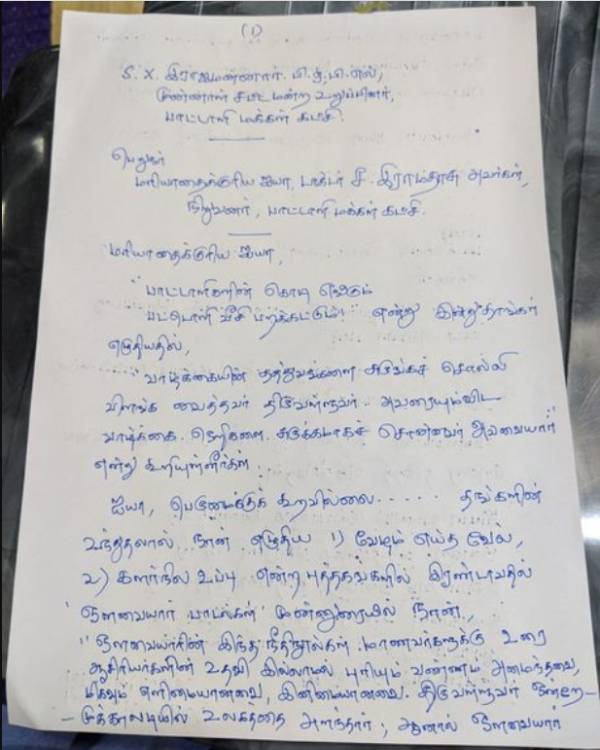 (1)
S. X. இராஜமன்னார். பி.ஏ.பி.எல்,
முன்னாள் சட்டமன்ற உறுப்பினர்,
பாட்டாளி மக்கள் கட்சி.
பெறுநர்
மரியாதைக்குரிய ஐயா, டாக்டர் சீ. இராமதாசு அவர்கள்,
நிறுவனர், பாட்டாளி மக்கள் கட்சி.
மரியாதைக்குரிய ஐயா,
"பாட்டாளிகளின் கொடி எங்கும்
பட்டொளி வீசி பறக்கட்டும்!" என்று இன்று தாங்கள்
எழுதியதில்,
"வாழ்க்கையின் தத்துவங்களை சுருங்கச் சொல்லி
விளங்க வைத்தவர் திருவள்ளுவர். அவரையும்விட
வாழ்க்கை நெறிகளை சுருக்கமாகச் சொன்னவர் அவ்வையார்"
என்று கூறியுள்ளீர்கள்.
ஐயா, பெருமைக்குக் கூறவில்லை..... தங்களின்
உந்துதலால் நான் எழுதிய 1) வேடும் எய்த வேல்,
2) களர்நில உப்பு என்ற புத்தகங்களில் இரண்டாவதில்
'ஔவையார் பாடல்கள்' முன்னுரையில் நான்,
"ஔவையாரின் இந்த நீதிநூல்கள் மாணவர்களுக்கு உரை
ஆசிரியர்களின் உதவி இல்லாமல் புரியும் வண்ணம் அமைந்தவை,
மிகவும் எளிமையானவை, இனிமையானவை. திருவள்ளுவர் ஒன்றே-
-முக்காலடியில் உலகத்தை அளந்தார்; ஆனால் ஔவையார்